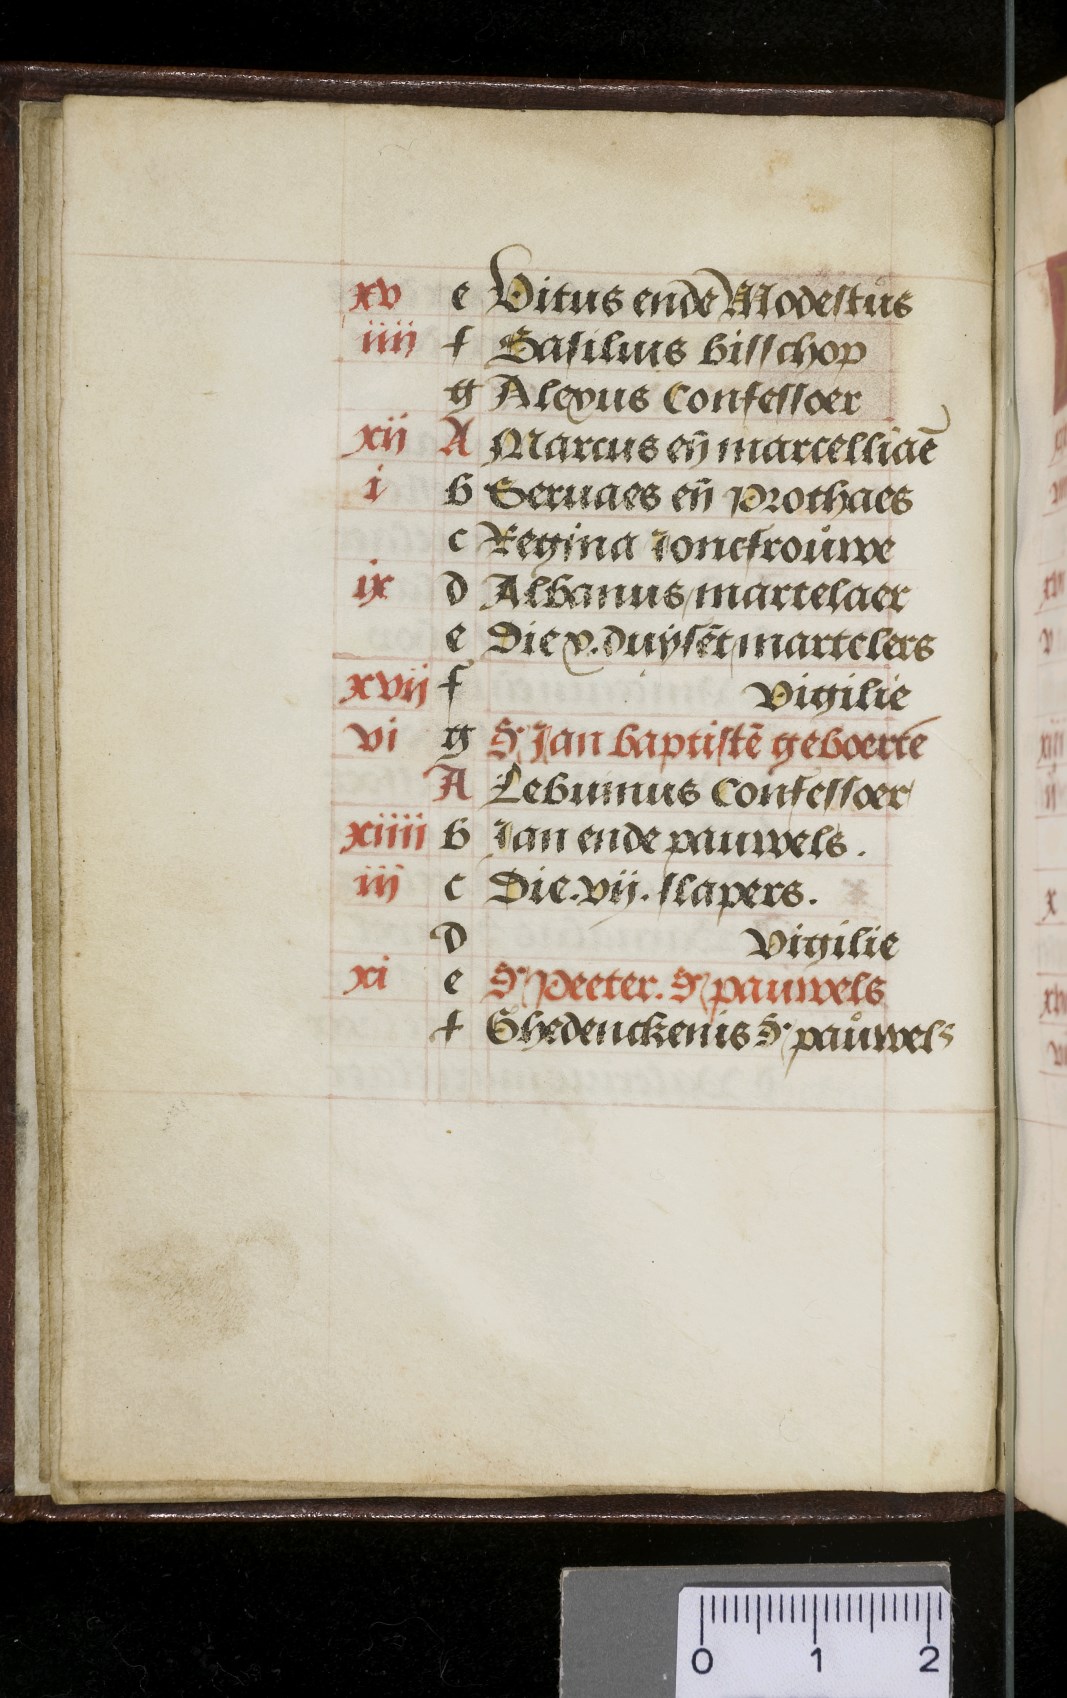 xv e Vitus ende Modestus
iiij f Basilius bisschop
g Alexus Confessoer
xij A Marcus eñ marcelliaē
i b Geruaes eñ Prothaes
c Regina Joncfrouwe
ix d Albanus martelaer
e Die x. duysēt martelers
xvij f Vigilie
vi g S Jan baptistē geboerte
A Lebuinus Confessoer
xiiii b Jan ende pauwels.
iij c Die .vij. slapers.
d Vigilie
xi e S Peeter. S pauwels
f Ghedenckenis S pauwels
0 1 2